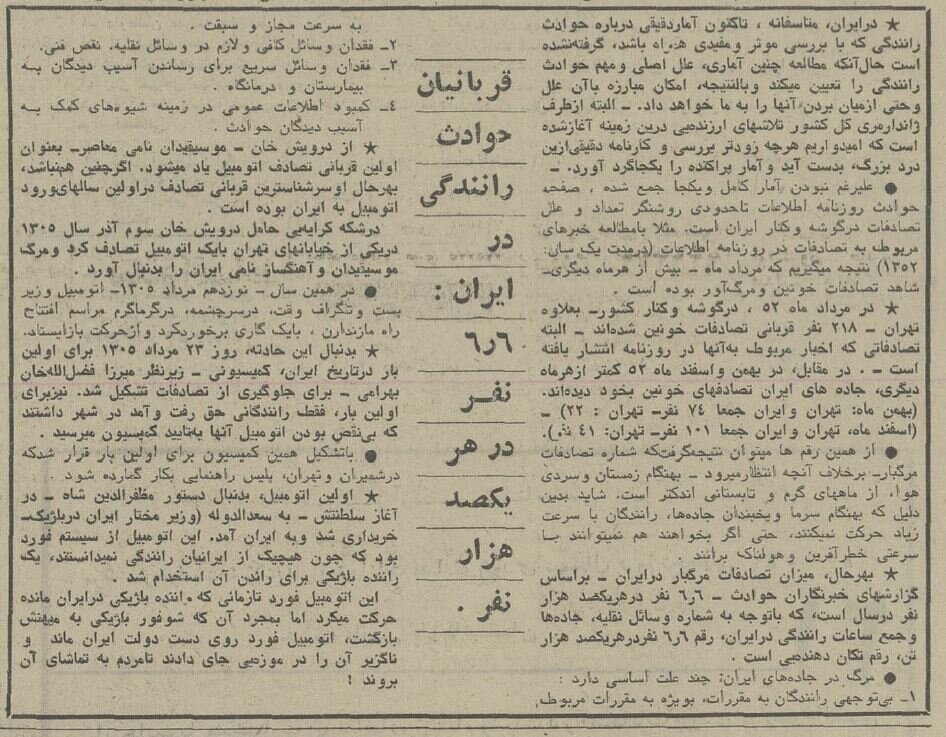 ★ درایران، متاسفانه ، تاکنون آماردقیقی درباره حوادث
رانندگی که با بررسی موثر ومفیدی همراه باشد، گرفته‌نشده
است حال‌آنکه مطالعه چنین آماری، علل اصلی ومهم حوادث
رانندگی را تعیین میکند وبالنتیجه، امکان مبارزه باآن علل
وحتی ازمیان بردن آنها را به ما خواهد داد. ـ البته ازطرف
ژاندارمری کل کشور تلاشهای ارزنده‌یی درین زمینه آغازشده
است که امیدواریم هرچه زودتر بررسی و کارنامه دقیقی‌ازین
درد بزرگ، بدست آید وآمار پراکنده را یکجاگرد آورد. ـ
● علیرغم نبودن آمار کامل ویکجا جمع شده ، صفحه
حوادث روزنامه اطلاعات تاحدودی روشنگر تعداد و علل
تصادفات درگوشه وکنار ایران است. مثلا بامطالعه خبرهای
مربوط به تصادفات در روزنامه اطلاعات (درمدت یک سال:
۱۳۵۲) نتیجه میگیریم که مرداد ماه ـ بیش از هرماه دیگری‌ـ
شاهد تصادفات خونین ومرگ‌آور بوده است .
★ در مرداد ماه ۵۲ ، درگوشه وکنار کشورـ بعلاوه
تهران ـ ۲۱۸ نفر قربانی تصادفات خونین شده‌اند ـ البته
تصادفاتی که اخبار مربوط به‌آنها در روزنامه انتشار یافته
است ـ . در مقابل، در بهمن واسفند ماه ۵۲ کمتر ازهرماه
دیگری، جاده های ایران تصادفهای خونین بخود دیده‌اند.
(بهمن ماه: تهران وایران جمعا ۷۴ نفرـ تهران : ۲۲) ـ
(اسفند ماه، تهران وایران جمعا ۱۰۱ نفرـ تهران: ۴۱ نفر).
● از همین رقم ها میتوان نتیجه‌گرفت‌که شماره تصادفات
مرگبارـ برخلاف آنچه انتظارمیرود ـ بهنگام زمستان وسردی
هوا، از ماههای گرم و تابستانی اندکتر است. شاید بدین
دلیل که بهنگام سرما ویخبندان جاده‌ها، رانندگان با سرعت
زیاد حرکت نمیکنند، حتی اگر بخواهند هم نمیتوانند بـا
سرعتی خطرآفرین وهولناک برانند .
★ بهرحال، میزان تصادفات مرگبار درایران ـ براساس
گزارشهای خبرنگاران حوادث ـ ۶ر۶ نفر درهریکصد هزار
نفر درسال است، که باتوجه به شماره وسائل نقلیه، جاده‌ها
وجمع ساعات رانندگی درایران، رقم ۶ر۶ نفردرهریکصد هزار
تن، رقم تکان دهنده‌یی است .
● مرگ در جاده‌های ایران: چند علت اساسی دارد :
۱ـ بی‌توجهی رانندگان به مقررات، بویژه به مقررات مربوط
قربانیان
حوادث
رانندگی
در
ایران :
۶ر۶
نفـر
در هر
یکصد
هزار
نفر .
به سرعت مجاز و سبقت .
۲ـ فقدان وسائل کافی ولازم در وسائل نقلیه. نقص فنی.
۳ـ فقدان وسائل سریع برای رساندن آسیب دیدگان بـه
بیمارستان و درمانگاه .
۴ـ کمبود اطلاعات عمومی در زمینه شیوه‌های کمک بـه
آسیب دیدگان حوادث .
★ از درویش خان ـ موسیقیدان نامی معاصرـ بعنوان
اولین قربانی تصادف اتومبیل یاد میشود. اگرچنین هم‌نباشد،
بهرحال اوسرشناسترین قربانی تصادف دراولین سالهای‌ورود
اتومبیل به ایران بوده است .
درشکه کرایه‌یی حامل درویش خان سوم آذر سال ۱۳۰۵
دریکی از خیابانهای تهران بایک اتومبیل تصادف کرد ومرگ
موسیقیدان و آهنگساز نامی ایران را بدنبال آورد .
● در همین سال ـ نوزدهم مرداد ۱۳۰۵ـ اتومبیل وزیر
پست وتلگراف وقت، درسرچشمه، درگرماگرم مراسم افتتاح
راه مازندارن ، بایک گاری برخوردکرد وازحرکت بازایستاد.
★ بدنبال این حادثه، روز ۲۳ مرداد ۱۳۰۵ برای اولین
بار درتاریخ ایران، کمیسیونی ـ زیرنظر میرزا فضل‌الله‌خان
بهرامی ـ برای جلوگیری از تصادفات تشکیل شد. نیزبرای
اولین بار، فقط رانندگانی حق رفت وآمد در شهر داشتند
که بی‌نقص بودن اتومبیل آنها به‌تایید کمیسیون میرسید .
● باتشکیل همین کمیسیون برای اولین بار قرار شدکه
درشمیران وتهران، پلیس راهنمایی بکار گمارده شود .
★ اولین اتومبیل، بدنبال دستور مظفرالدین شاه ـ در
آغاز سلطنتش ـ به سعدالدوله (وزیر مختار ایران دربلژیک‌ـ
خریداری شد وبه ایران آمد. این اتومبیل از سیستم فورد
بود که چون هیچیک از ایرانیان رانندگی نمیدانستند، یک
راننده بلژیکی برای راندن آن استخدام شد .
این اتومبیل فورد تازمانی که راننده بلژیکی درایران مانده
حرکت میکرد اما بمجرد آن که شوفور بلژیکی به میهنش
بازگشت، اتومبیل فورد روی دست دولت ایران ماند و
ناگزیر آن را در موزه‌یی جای دادند تامردم به تماشای آن
بروند !